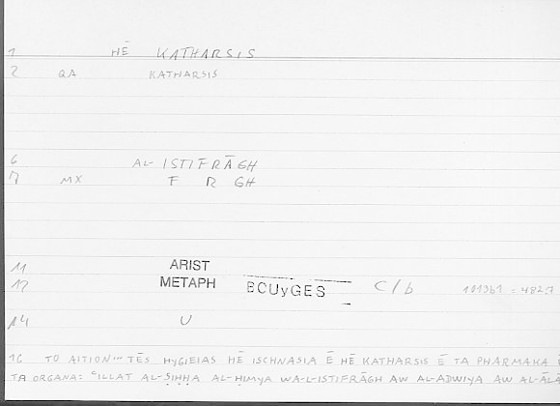 1 HĒ KATHARSIS
2 QA KATHARSIS
6 AL-ISTIFRĀGH
7 MX F R GH
11 ARIST
12 METAPH BOUYGES C/b
14 U
16 TO AITION... TĒS HYGIEIAS HĒ ISCHNASIA Ē HĒ KATHARSIS Ē TA PHARMAKA
TA ORGANA: ʿILLAT AL-ṢIḤḤA AL-ḤIMYA WA-L-ISTIFRĀGH AW AL-ADWIYA AW AL-ĀLĀ